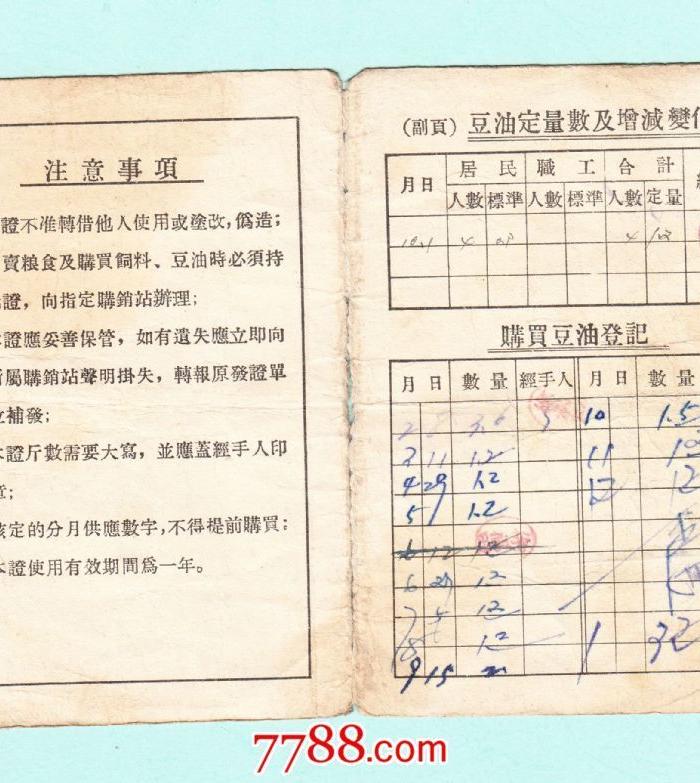 注意事項
證不准轉借他人使用或塗改,僞造;
賣粮食及購買飼料、豆油時必須持
證,向指定購銷站辦理;
證應妥善保管,如有遺失應立即向
屬購銷站聲明掛失,轉報原發證單
補發;
證斤數需要大寫,並應蓋經手人印
章;
核定的分月供應數字,不得提前購買;
本證使用有效期間爲一年。
(副頁) 豆油定量數及增減變
月日 居民 職工 合計
人數 標準 人數 標準 人數 定量
10.1 4 4
購買豆油登記
月 日 數量 經手人 月 日 數量
10 1.5
3 11 1.2 11
4 29 1.2 12 12
5 1 1.2
6 12 1.2
6 1.2
7 1.2
8 1.2 1 32
9 15
7788.com